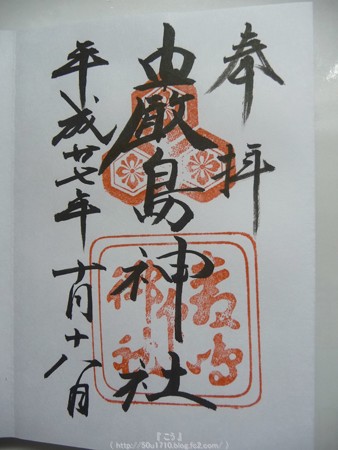 奉拝
嚴島神社
平成廿七年 十月十八日
『こう』
( http://50u1710.blog.fc2.com/ )